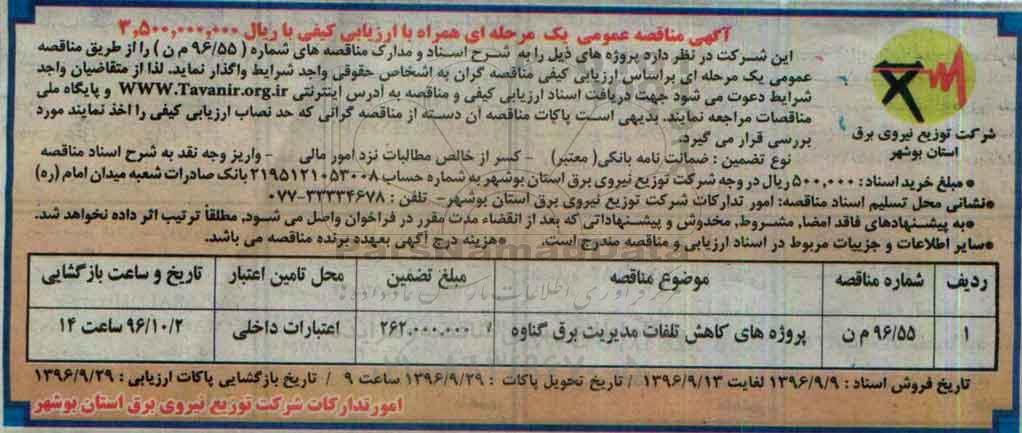 آگهی مناقصه عمومی یک مرحله ای همراه با ارزیابی کیفی با ریال ۳,۵۰۰,۰۰۰,۰۰۰
این شرکت در نظر دارد پروژه های ذیل را به شرح اسناد و مدارک مناقصه های شماره ( ۹۶/۵۵ م ن ) را از طریق مناقصه
عمومی یک مرحله ای براساس ارزیابی کیفی مناقصه گران به اشخاص حقوقی واجد شرایط واگذار نماید. لذا از متقاضیان واجد
شرایط دعوت می شود جهت دریافت اسناد ارزیابی کیفی و مناقصه به آدرس اینترنتی WWW.Tavanir.org.ir و پایگاه ملی
مناقصات مراجعه نمایند. بدیهی است پاکات مناقصه آن دسته از مناقصه گرانی که حد نصاب ارزیابی کیفی را اخذ نمایند مورد
بررسی قرار می گیرد.
شرکت توزیع نیروی برق
استان بوشهر
نوع تضمین : ضمانت نامه بانکی( معتبر) - کسر از خالص مطالبات نزد امور مالی - واریز وجه نقد به شرح اسناد مناقصه
● مبلغ خرید اسناد: ۵۰۰,۰۰۰ ریال در وجه شرکت توزیع نیروی برق استان بوشهر به شماره حساب ۲۱۹۵۱۲۱۰۵۳۰۰۸ بانک صادرات شعبه میدان امام (ره)
●نشانی محل تسلیم اسناد مناقصه: امور تدارکات شرکت توزیع نیروی برق استان بوشهر- تلفن : ۳۳۳۳۴۶۷۸-۰۷۷
●به پیشنهادهای فاقد امضا, مشروط, مخدوش و پیشنهاداتی که بعد از انقضاء مدت مقرر در فراخوان واصل می شود, مطلقاً ترتیب اثر داده نخواهد شد.
●سایر اطلاعات و جزییات مربوط در اسناد ارزیابی و مناقصه مندرج است. ●هزینه درج آگهی بعهده برنده مناقصه می باشد.
ردیف شماره مناقصه موضوع مناقصه مبلغ تضمین محل تامین اعتبار تاریخ و ساعت بازگشایی
۱ ۹۶/۵۵ م ن پروژه های کاهش تلفات مدیریت برق گناوه ۲۶۲.۰۰۰.۰۰۰ اعتبارات داخلی ۹۶/۱۰/۲ ساعت ۱۴
تاریخ فروش اسناد : ۱۳۹۶/۹/۹ لغایت ۱۳۹۶/۹/۱۳ / تاریخ تحویل پاکات : ۱۳۹۶/۹/۲۹ ساعت ۹ / تاریخ بازگشایی پاکات ارزیابی : ۱۳۹۶/۹/۲۹
امور تدارکات شرکت توزیع نیروی برق استان بوشهر
ParsNamadData